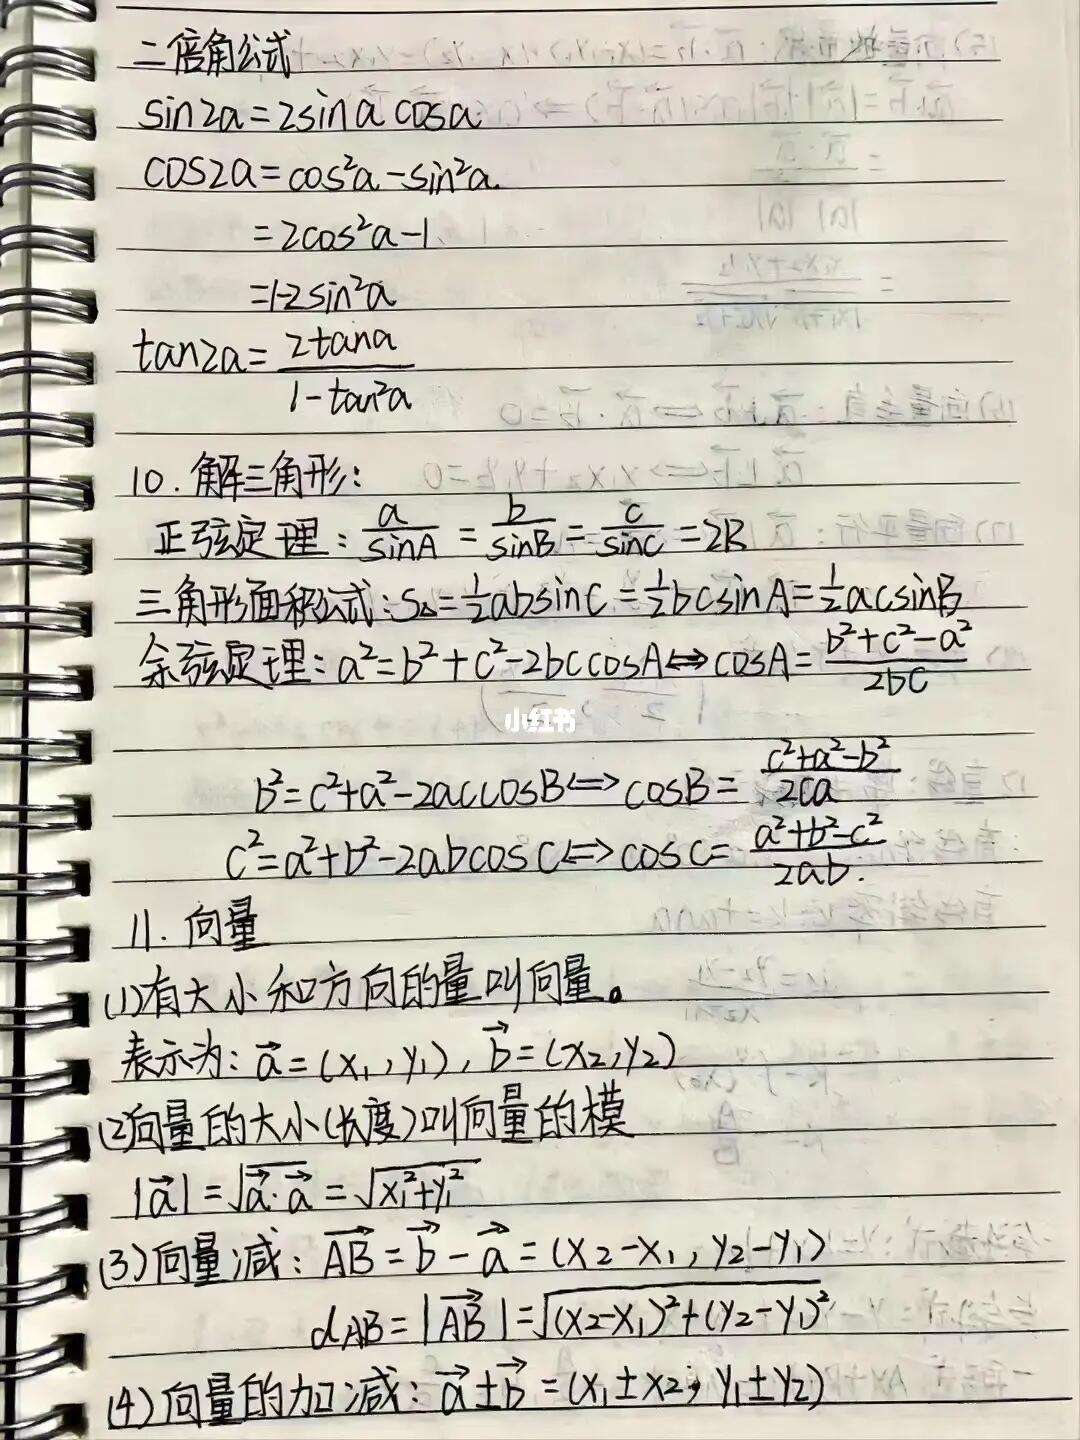 二倍角公式
sin2a=2sina cosa
cos2a=cos²a-sin²a.
=2cos²a-1
=1-2sin²a
tan2a= 2tana / 1-tan²a
10. 解三角形:
正弦定理: a/sinA = b/sinB = c/sinC =2R
三角形面积公式: S△=½absinC=½bcsinA=½acsinB
余弦定理: a²=b²+c²-2bccosA⇔cosA= b²+c²-a² / 2bc
小红书
b²=c²+a²-2accosB⇔cosB= c²+a²-b² / 2ca
c²=a²+b²-2abcosC⇔cosC= a²+b²-c² / 2ab.
11. 向量
(1)有大小和方向的量叫向量。
表示为: a⃗=(x₁,y₁), b⃗=(x₂,y₂)
(2)向量的大小(长度)叫向量的模
|a⃗|=√(a⃗·a⃗)=√(x₁²+y₁²)
(3)向量减: AB⃗=b⃗-a⃗=(x₂-x₁, y₂-y₁)
dAB=|AB⃗|=√((x₂-x₁)²+(y₂-y₁)²)
(4)向量的加减: a⃗±b⃗=(x₁±x₂, y₁±y₂)